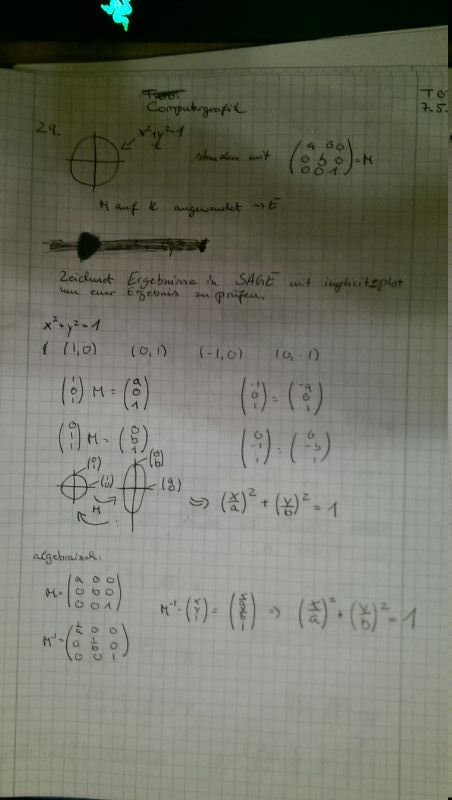 Computergrafik
T0
7.5.
29.
x²+y²=1
k
strecken mit (a 0 0; 0 b 0; 0 0 1) = M
M auf K angewendet → E
Zeichnet Ergebnisse in SAGE mit implicit_plot
um euer Ergebnis zu prüfen.
x²+y²=1
(1,0) (0,1) (-1,0) (0,-1)
(1; 0; 1) M = (a; 0; 1) (-1; 0; 1) = (-a; 0; 1)
(0; 1; 1) M = (0; b; 1) (0; -1; 1) = (0; -b; 1)
(0; 1) (1; 0) M (0; b) (a; 0) ⇒ (x/a)² + (y/b)² = 1
algebraisch:
M = (a 0 0; 0 b 0; 0 0 1)
M⁻¹ · (x; y; 1) = (x/a; y/b; 1) ⇒ (x/a)² + (y/b)² = 1
M⁻¹ = (1/a 0 0; 0 1/b 0; 0 0 1)